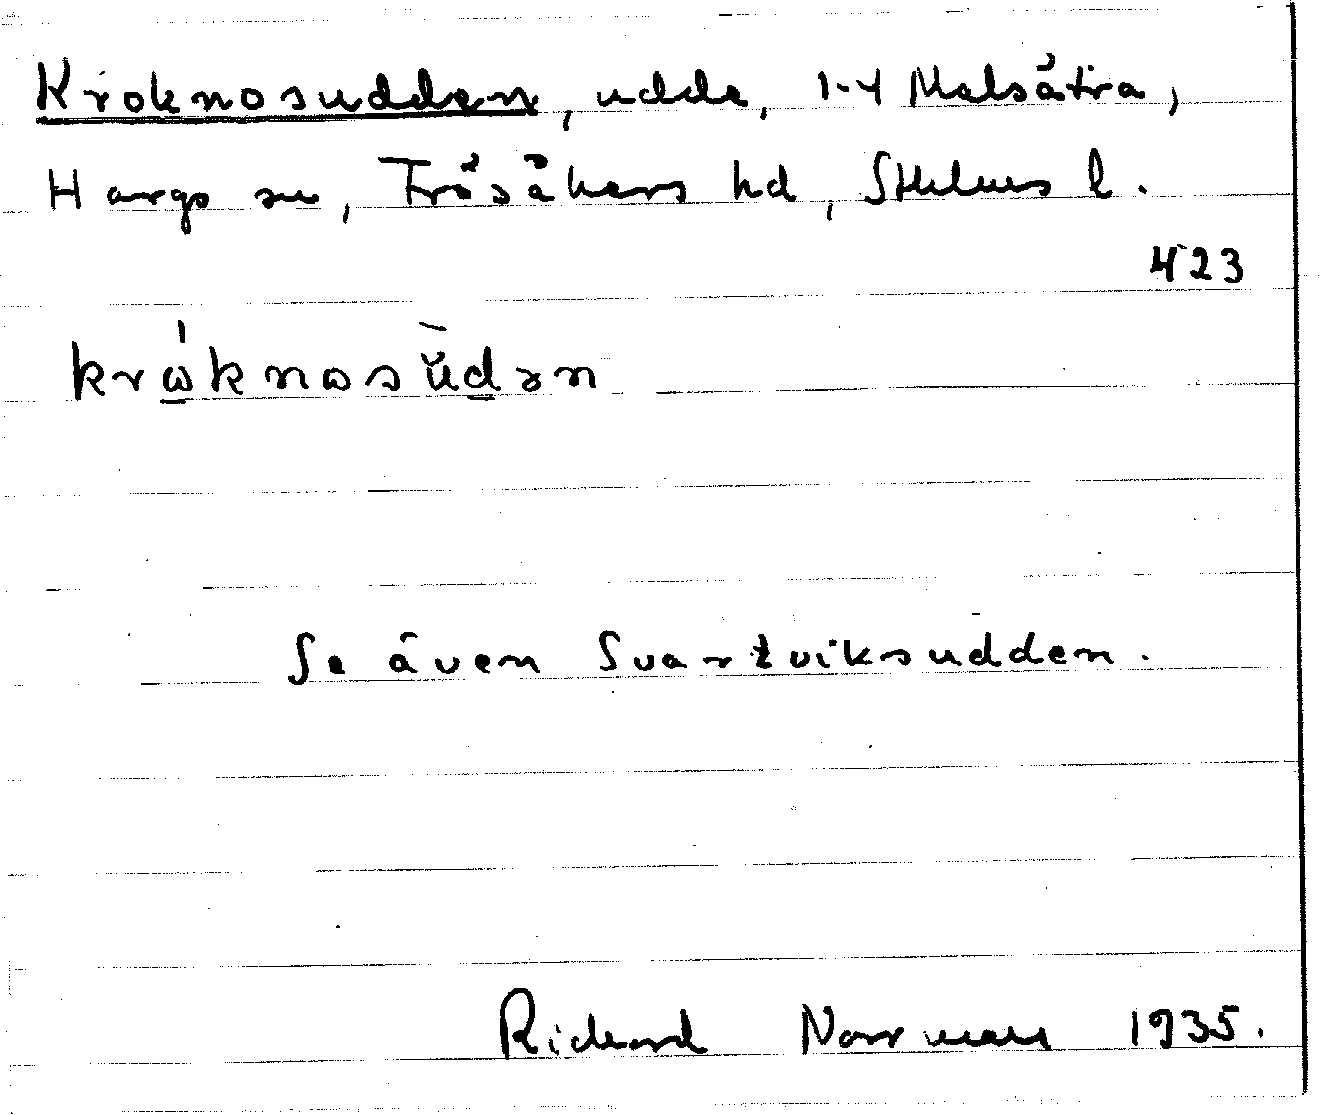 Kroknosudden, udde, 1-4 Malsätra,
Hargs sn, Frösåkers hd, Sthlms l.
423
krωknωsudən
Se även Svartviksudden.
Richard Norrman 1935.